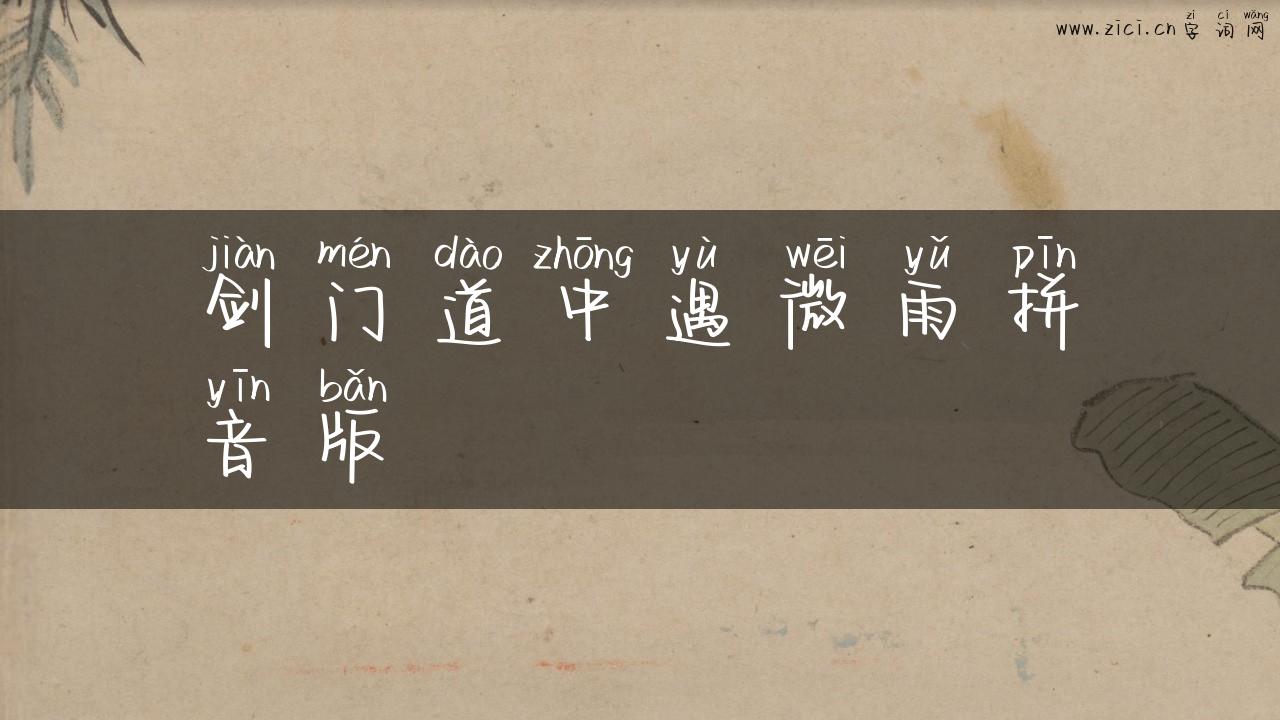 zì cí wǎng
www.zici.cn 字词网
jiàn mén dào zhōng yù wēi yǔ pīn
剑门道中遇微雨拼
yīn bǎn
音版